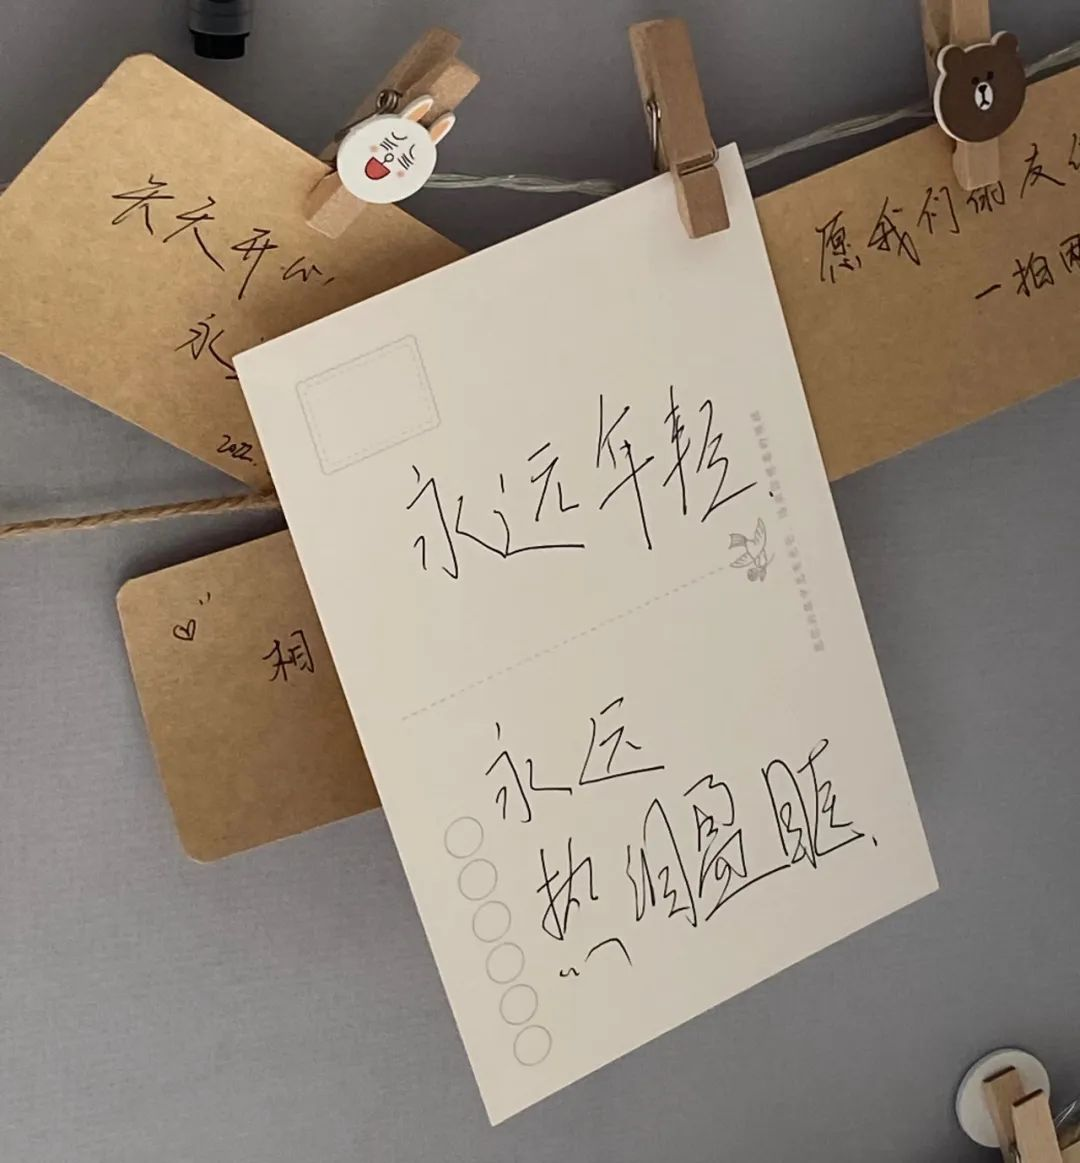 天天开心,
永
2022.
愿我们的友
一拍两
相
永远年轻.
永远
热泪盈眶.